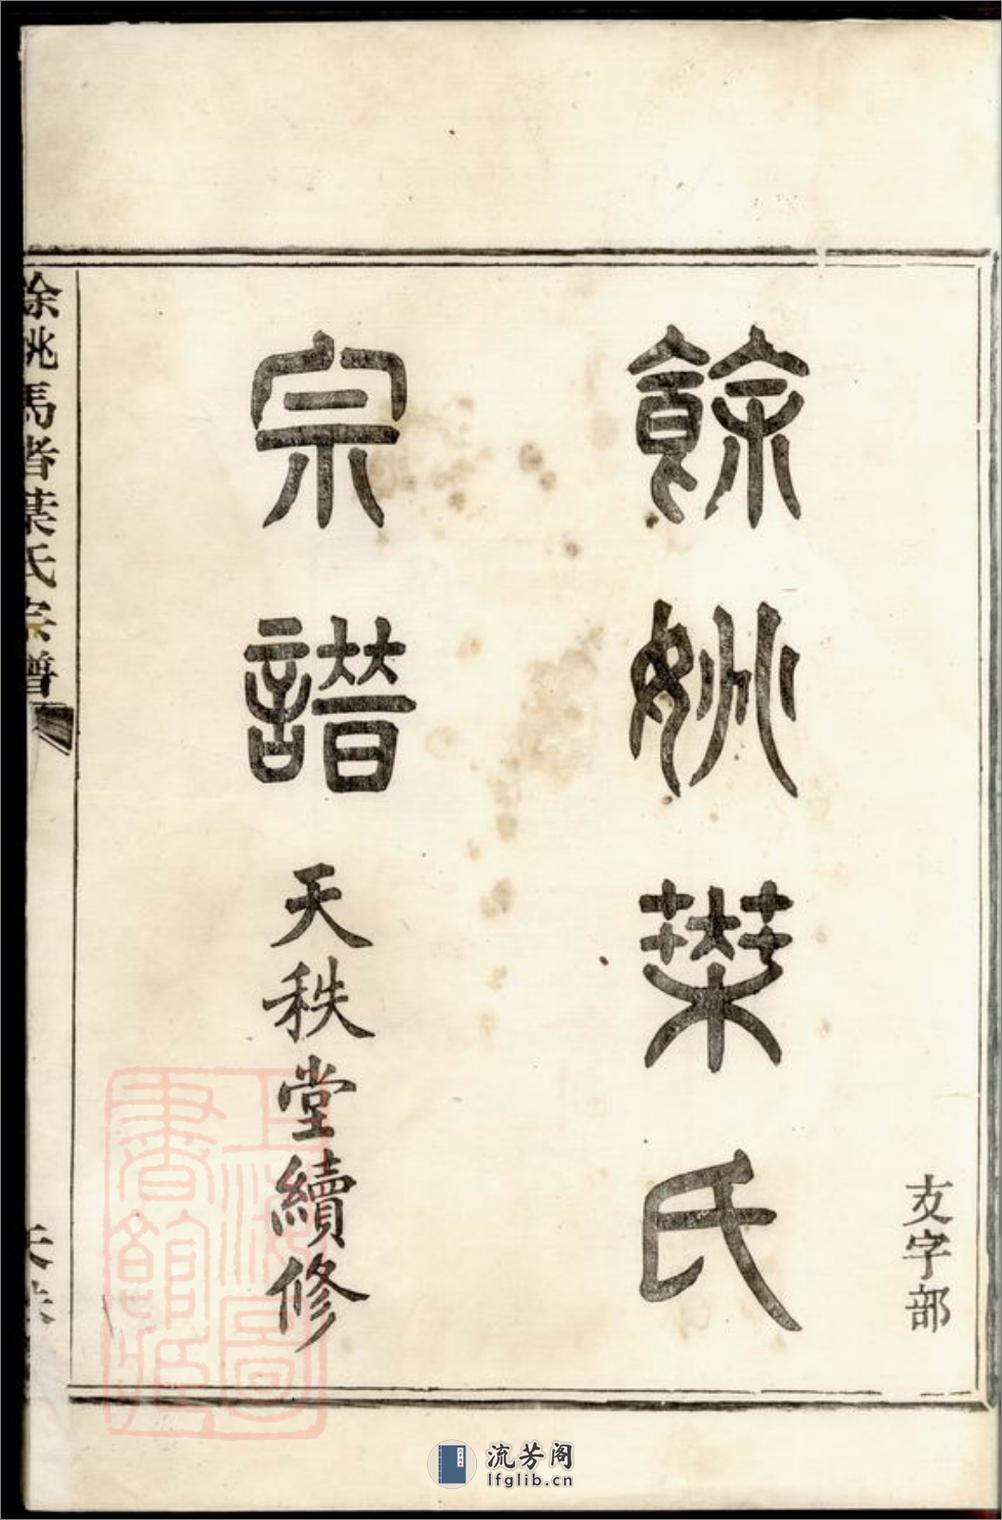 友字部
餘姚葉氏
宗譜
天秩堂續修
餘姚馬者葉氏宗譜
上海圖
書館藏
流芳阁
lfglib.cn